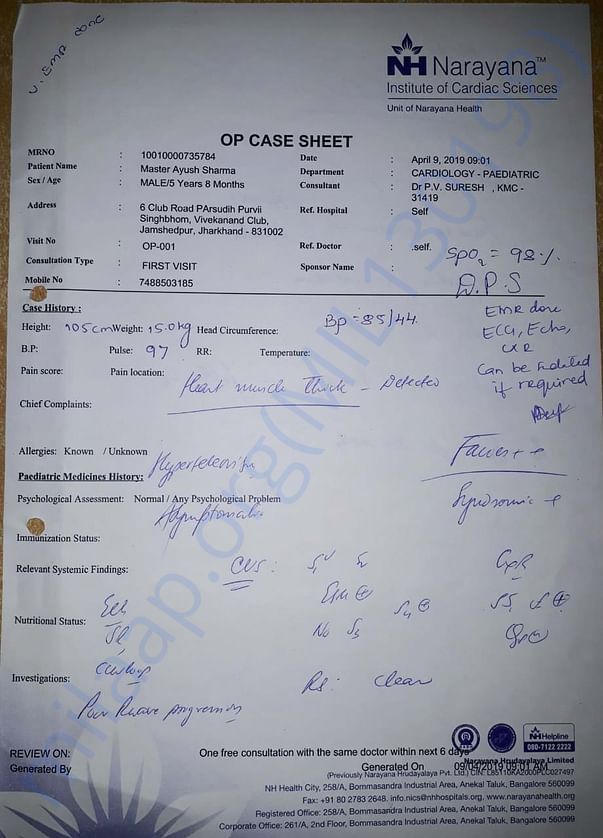 V. EMR done
NH Narayana™
Institute of Cardiac Sciences
Unit of Narayana Health
OP CASE SHEET
MRNO : 10010000735784
Patient Name : Master Ayush Sharma
Sex / Age : MALE/5 Years 8 Months
Address : 6 Club Road PArsudih Purvii
Singhbhom, Vivekanand Club,
Jamshedpur, Jharkhand - 831002
Visit No : OP-001
Consultation Type : FIRST VISIT
Mobile No : 7488503185
Date : April 9, 2019 09:01
Department : CARDIOLOGY - PAEDIATRIC
Consultant : Dr P.V. SURESH , KMC -
31419
Ref. Hospital : Self
Ref. Doctor : .self.
Sponsor Name :
SpO2 = 98 %
D.P.S
EMR done
ECG, Echo,
CXR
Can be added
if required
Case History :
Height: 105cm Weight: 15.0kg Head Circumference: Bp = 85/44
B.P: Pulse: 97 RR: Temperature:
Pain score: Pain location:
Heart muscle Thick - Detected
Chief Complaints:
Allergies: Known / Unknown
Facies ++
Paediatric Medicines History:
Syndromic
Psychological Assessment: Normal / Any Psychological Problem
Asymptomatic
Immunization Status:
Relevant Systemic Findings: CVS :
ESM ⊕
Nutritional Status: S4 ⊕
No S3
Investigations: RS: clear
Poor R wave progression
REVIEW ON: One free consultation with the same doctor within next 6 days
NH Helpline
080-7122 2222
Generated By Generated On 09/04/2019 09:01 AM
Narayana Hrudayalaya Limited
(Previously Narayana Hrudayalaya Pvt. Ltd.) CIN: L85110KA2000PLC027497
NH Health City, 258/A, Bommasandra Industrial Area, Anekal Taluk, Bangalore 560099
Fax: +91 80 2783 2648. info.nics@nhhospitals.org, www.narayanahealth.org
Registered Office: 258/A, Bommasandra Industrial Area, Anekal Taluk, Bangalore 560099
Corporate Office: 261/A, 2nd Floor, Bommasandra Industrial Area, Anekal Taluk, Bangalore 560099